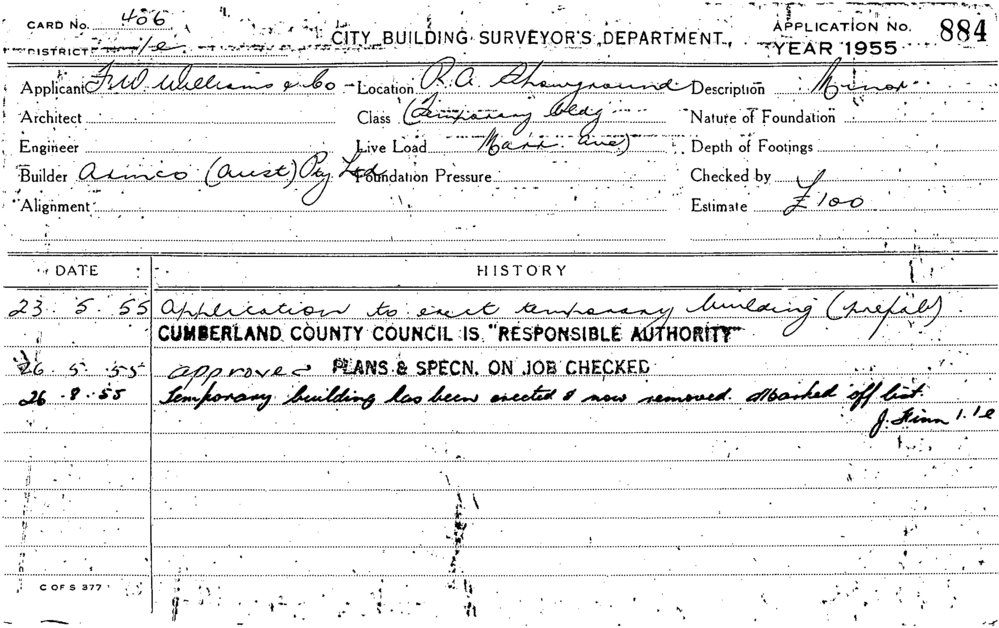 CARD No. 406
CITY BUILDING SURVEYOR'S DEPARTMENT,
APPLICATION No. 884
DISTRICT 1/e
YEAR 1955
Applicant F W Williams & Co Location R.A. Showground Description Minor
Architect Class (Temporary bldg Nature of Foundation
Engineer Live Load Ave) Depth of Footings
Builder Armco (Aust) Pty Ltd Foundation Pressure Checked by
Alignment Estimate £100
DATE HISTORY
23. 5. 55 Application to erect temporary building (prefab).
CUMBERLAND COUNTY COUNCIL IS "RESPONSIBLE AUTHORITY"
26. 5. 55 approved PLANS & SPECN. ON JOB CHECKED
26. 8. 55 Temporary building has been erected & now removed. Marked off list.
J. Finn 1.1e
C OF S 377